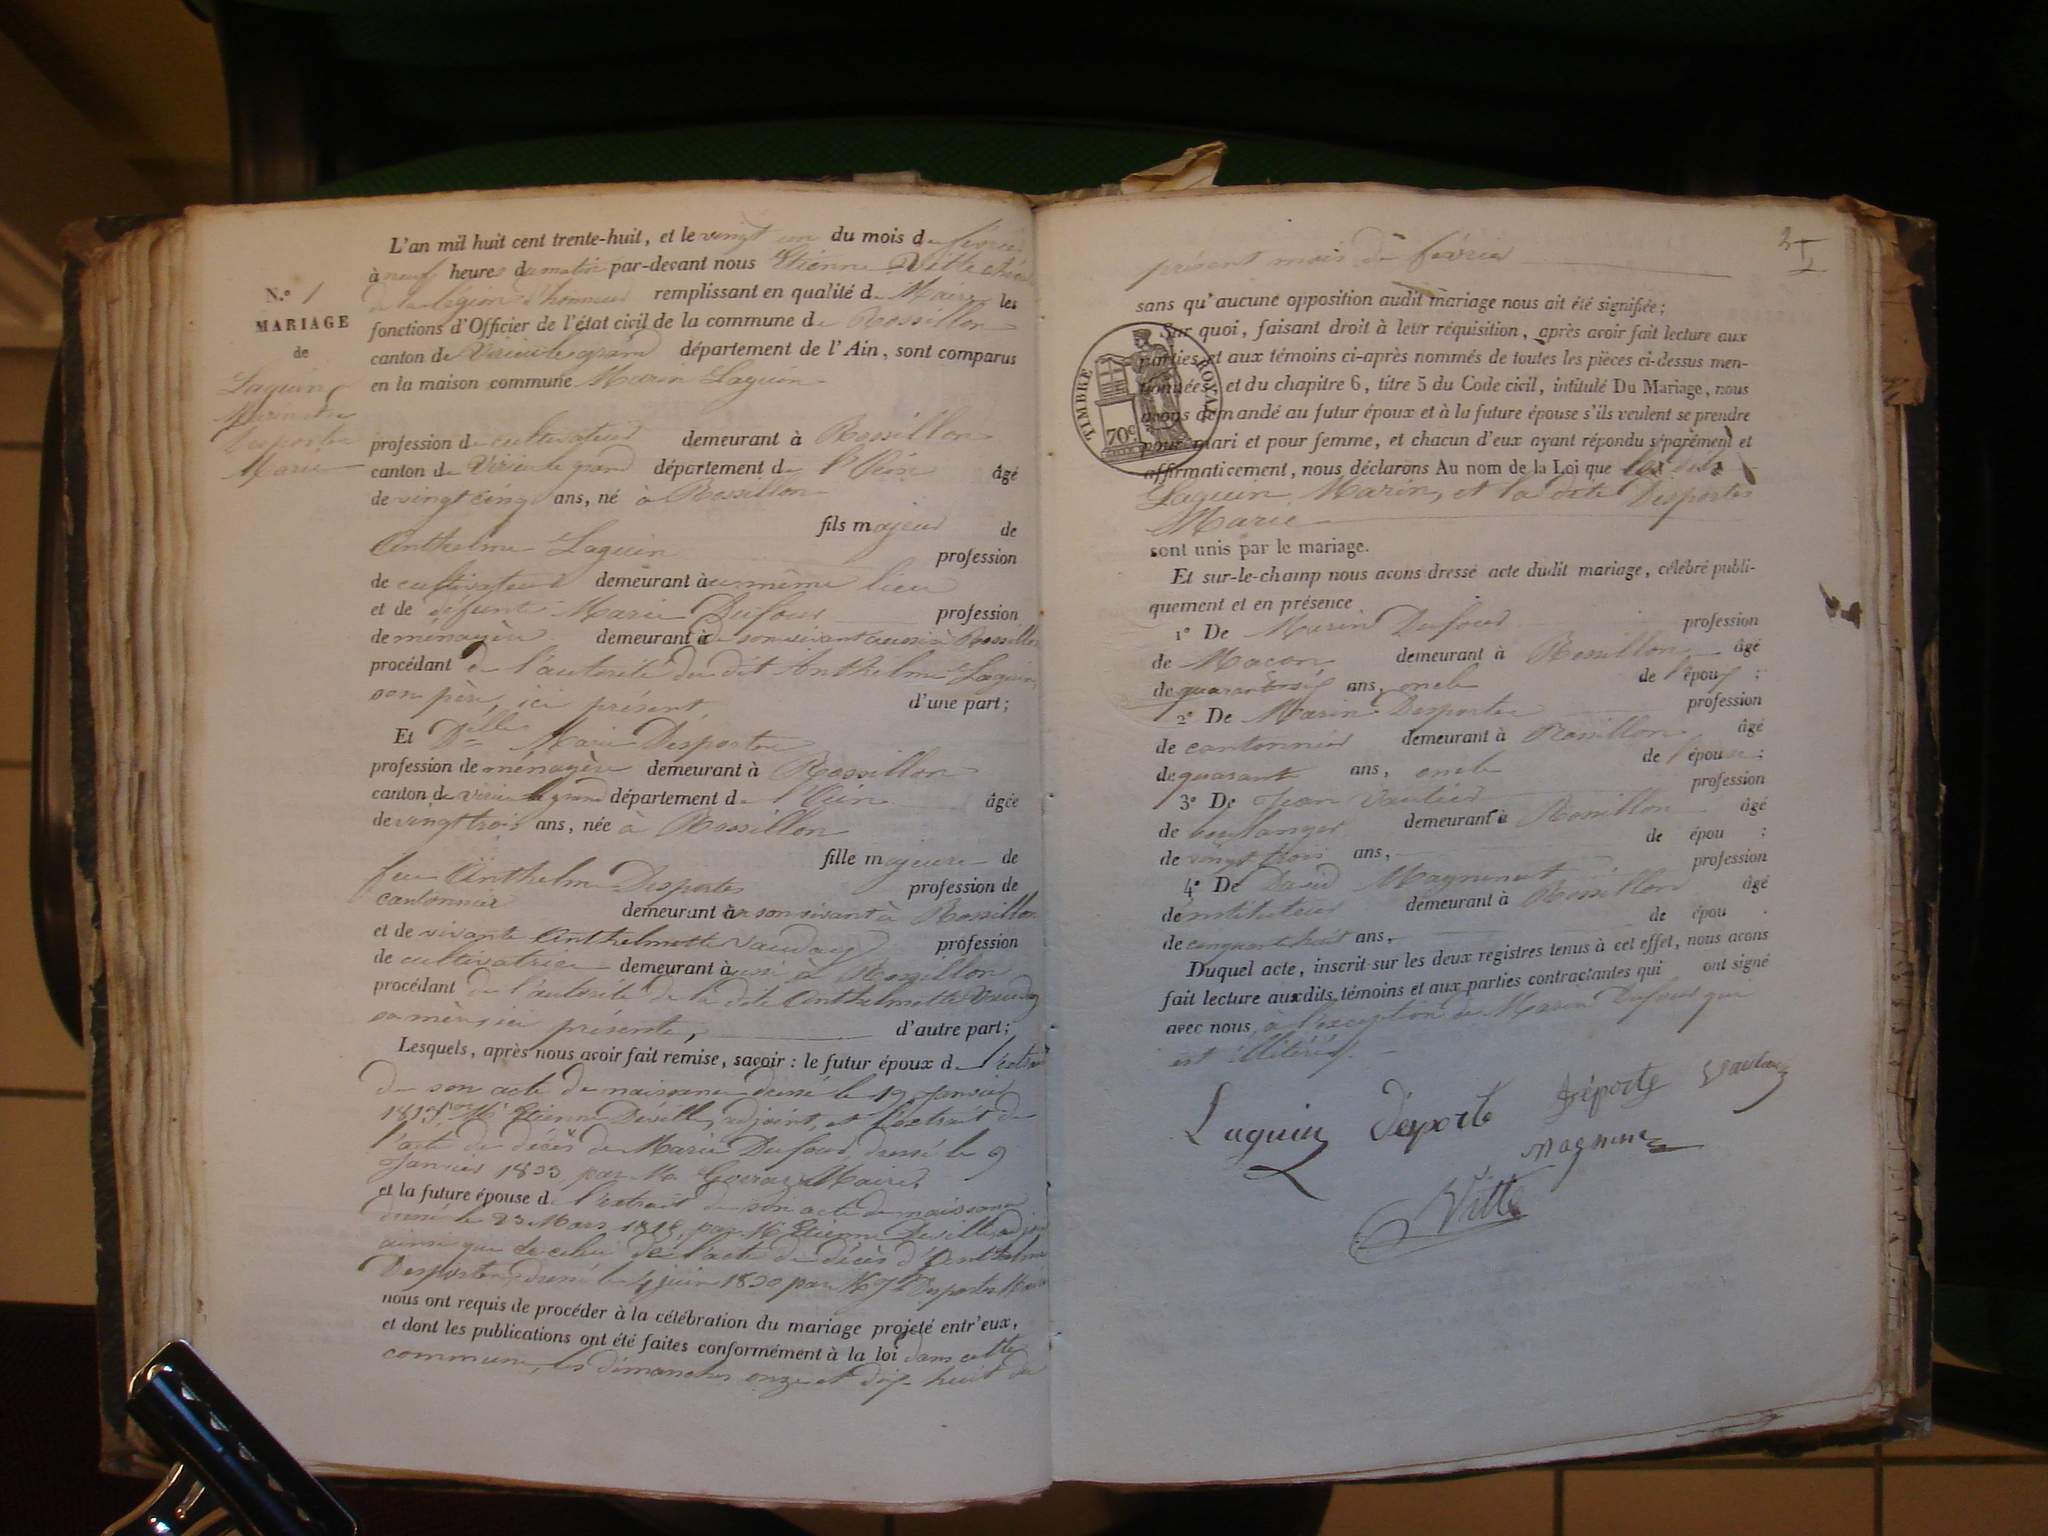 N.º 1
MARIAGE
de
Laguin
Marin et
Desportes
Marie
L'an mil huit cent trente-huit, et le vingt un du mois de février
à neuf heures du matin par-devant nous Etienne Vitte
de la légion d'honneur remplissant en qualité de Maire les
fonctions d'Officier de l'état civil de la commune de Rossillon
canton de Virieu le grand département de l'Ain, sont comparus
en la maison commune Marin Laguin
profession de cultivateur demeurant à Rossillon
canton de Virieu le grand département de l'Ain âgé
de vingt cinq ans, né à Rossillon
fils majeur de
Anthelme Laguin profession
de cultivateur demeurant au même lieu
et de défunte Marie Dufour profession
de ménagère demeurant de son vivant aussi à Rossillon
procédant de l'autorité du dit Anthelme Laguin
son père, ici présent, d'une part;
Et Delle Marie Desportes
profession de ménagère demeurant à Rossillon
canton de Virieu le grand département de l'Ain âgée
de vingt trois ans, née à Rossillon
fille majeure de
feu Anthelme Desportes profession de
cantonnier demeurant en son vivant à Rossillon
et de vivante Anthelmette Vauday profession
de cultivatrice demeurant aussi à Rossillon
procédant de l'autorité de la dite Anthelmette Vauday
sa mère, ici présente, d'autre part;
Lesquels, après nous avoir fait remise, savoir : le futur époux de l'extrait
de son acte de naissance dressé le 19 Janvier
Mr Etienne Deville, adjoint, et l'extrait de
l'acte de décès de Marie Dufour, dressé le 9
Janvier 1833 par Mr Maire,
et la future épouse de l'extrait de son acte de naissance
dressé le 23 Mars par Mr Etienne Deville adjoint
ainsi que de celui de l'acte de décès d'Anthelme
Desportes, dressé le 4 juin 1830 par Mr Desportes Maire
nous ont requis de procéder à la célébration du mariage projeté entr'eux,
et dont les publications ont été faites conformément à la loi dans cette
commune, les dimanches onze et dix-huit du
2
présent mois de février
sans qu'aucune opposition audit mariage nous ait été signifiée;
Sur quoi, faisant droit à leur réquisition, après avoir fait lecture aux
parties et aux témoins ci-après nommés de toutes les pièces ci-dessus men-
tionnées, et du chapitre 6, titre 5 du Code civil, intitulé Du Mariage, nous
avons demandé au futur époux et à la future épouse s'ils veulent se prendre
pour mari et pour femme, et chacun d'eux ayant répondu séparément et
affirmativement, nous déclarons Au nom de la Loi que les dits
Laguin Marin, et la dite Desportes
Marie
TIMBRE ROYAL
70 c.
sont unis par le mariage.
Et sur-le-champ nous avons dressé acte dudit mariage, célébré publi-
quement et en présence
1º De Marin Dufour profession
de Macon demeurant à Rossillon âgé
de quarante six ans, oncle de l'époux;
2º De Marin Desportes profession
de cantonnier demeurant à Rossillon âgé
de quarante ans, oncle de l'épouse;
3º De Jean profession
de boulanger demeurant à Rossillon âgé
de vingt trois ans, de épou ;
4º De David Magnenot profession
de instituteur demeurant à Rossillon âgé
de cinquante huit ans, de épou .
Duquel acte, inscrit sur les deux registres tenus à cet effet, nous avons
fait lecture auxdits témoins et aux parties contractantes qui ont signé
avec nous, à l'exception de Marin Dufour qui
est illitéré.
Laguin Desporte Déporte
Vitte